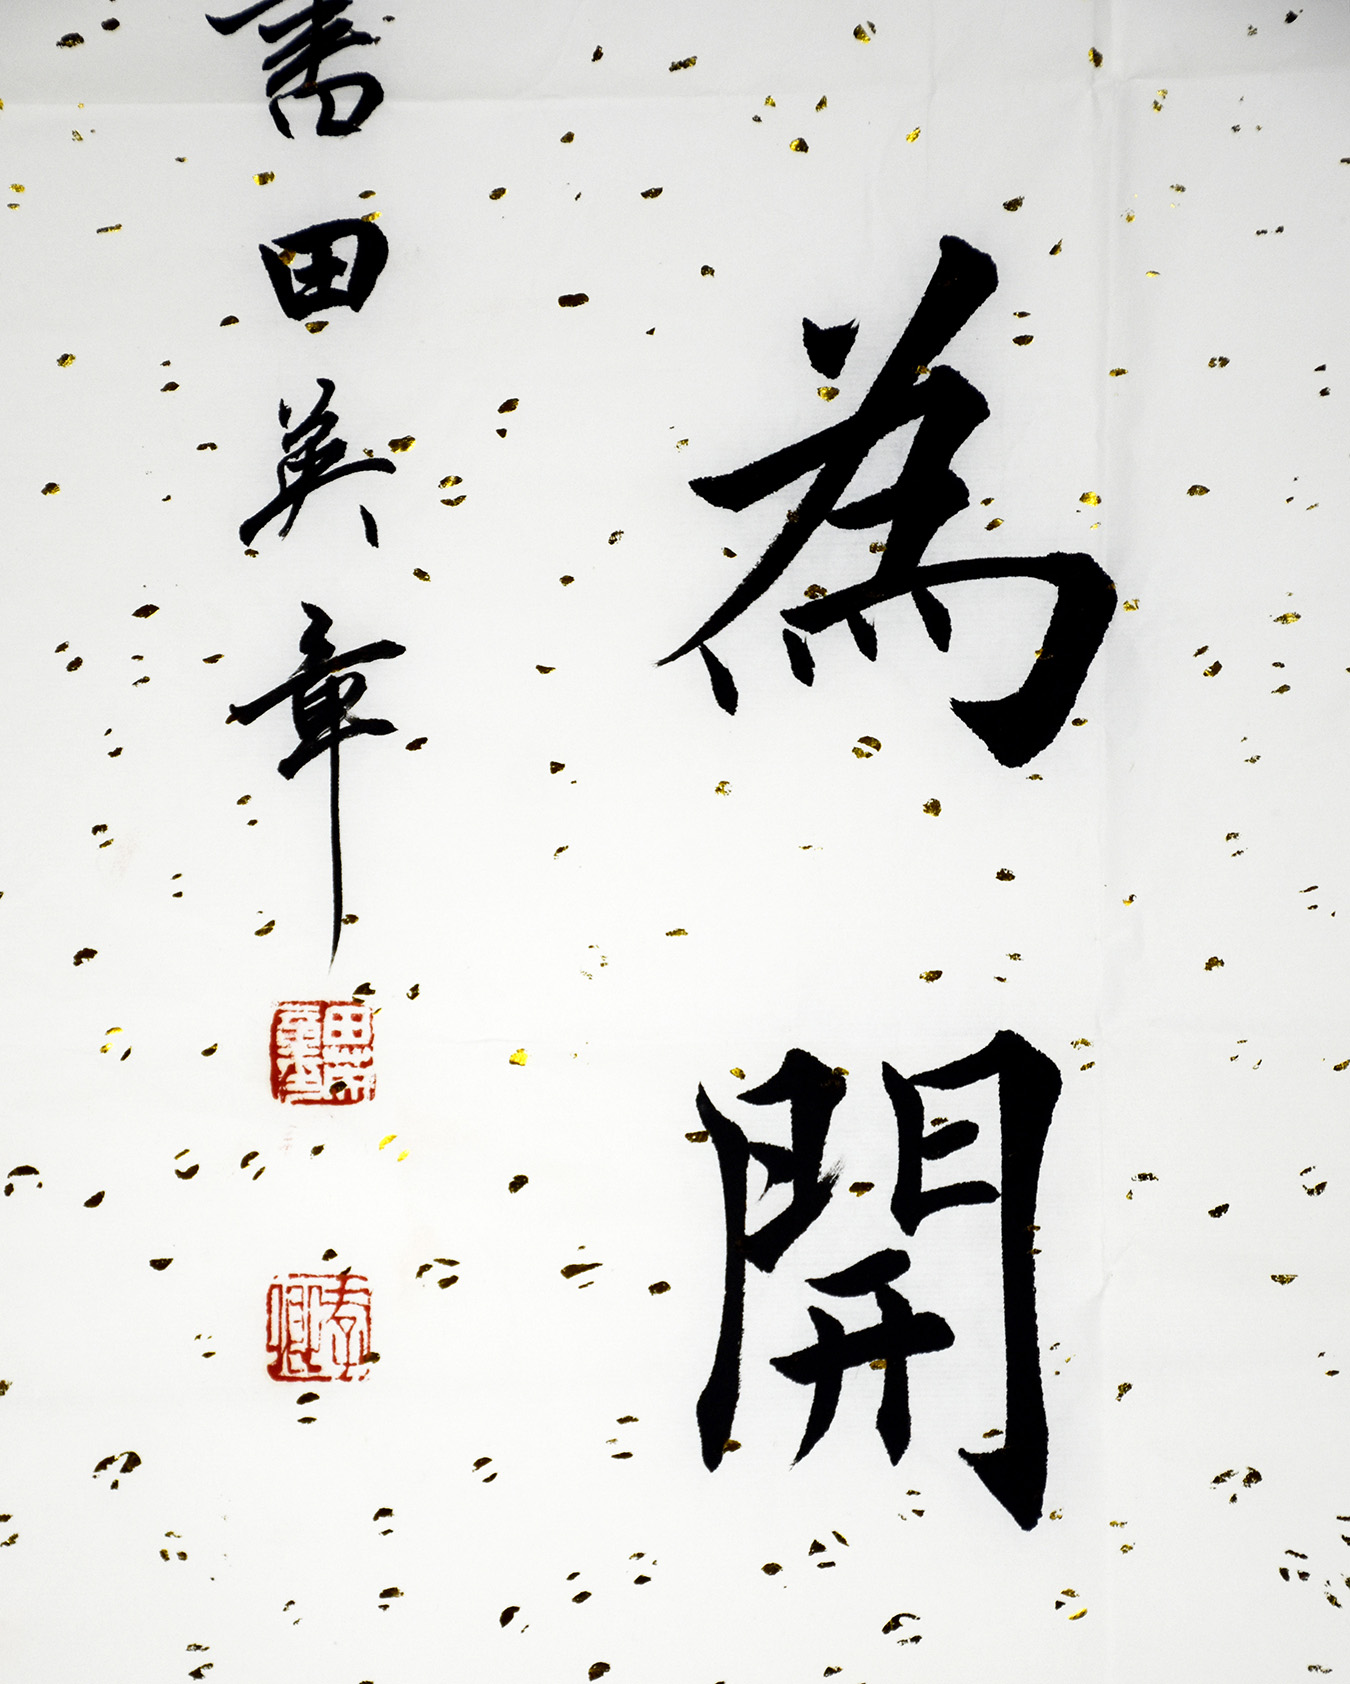 為開
書田英章